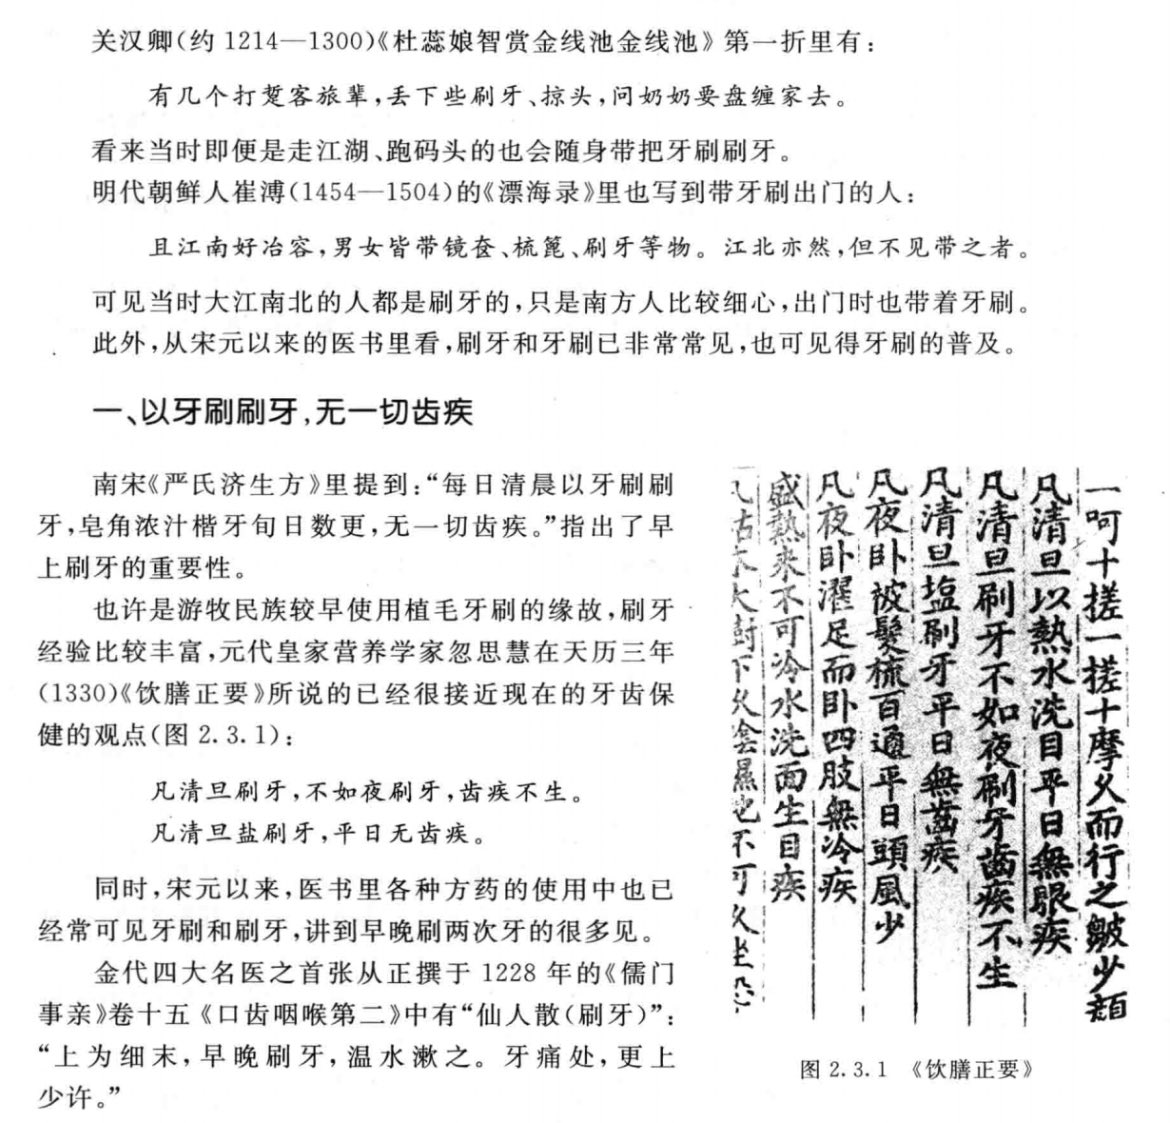 关汉卿(约 1214—1300)《杜蕊娘智赏金线池金线池》第一折里有:
有几个打踅客旅辈,丢下些刷牙、掠头,问奶奶要盘缠家去。
看来当时即便是走江湖、跑码头的也会随身带把牙刷刷牙。
明代朝鲜人崔溥(1454—1504)的《漂海录》里也写到带牙刷出门的人:
且江南好冶容,男女皆带镜奁、梳篦、刷牙等物。江北亦然,但不见带之者。
可见当时大江南北的人都是刷牙的,只是南方人比较细心,出门时也带着牙刷。
此外,从宋元以来的医书里看,刷牙和牙刷已非常常见,也可见得牙刷的普及。
一、以牙刷刷牙,无一切齿疾
南宋《严氏济生方》里提到:“每日清晨以牙刷刷
牙,皂角浓汁楷牙旬日数更,无一切齿疾。”指出了早
上刷牙的重要性。
也许是游牧民族较早使用植毛牙刷的缘故,刷牙
经验比较丰富,元代皇家营养学家忽思慧在天历三年
(1330)《饮膳正要》所说的已经很接近现在的牙齿保
健的观点(图 2.3.1):
凡清旦刷牙,不如夜刷牙,齿疾不生。
凡清旦盐刷牙,平日无齿疾。
同时,宋元以来,医书里各种方药的使用中也已
经常可见牙刷和刷牙,讲到早晚刷两次牙的很多见。
金代四大名医之首张从正撰于 1228 年的《儒门
事亲》卷十五《口齿咽喉第二》中有“仙人散(刷牙)”:
“上为细末,早晚刷牙,温水漱之。牙痛处,更上
少许。”
一呵十搓一搓十摩久而行之皺少顏
凡清旦以熱水洗目平日無眼疾
凡清旦刷牙不如夜刷牙齒疾不生
凡清旦塩刷牙平日無齒疾
凡夜卧被髮梳百通平日頭風少
凡夜卧濯足而卧四肢無冷疾
盛熱来不可冷水洗面生目疾
凡枯木大樹下久陰濕也不可久坐恐
图 2.3.1 《饮膳正要》